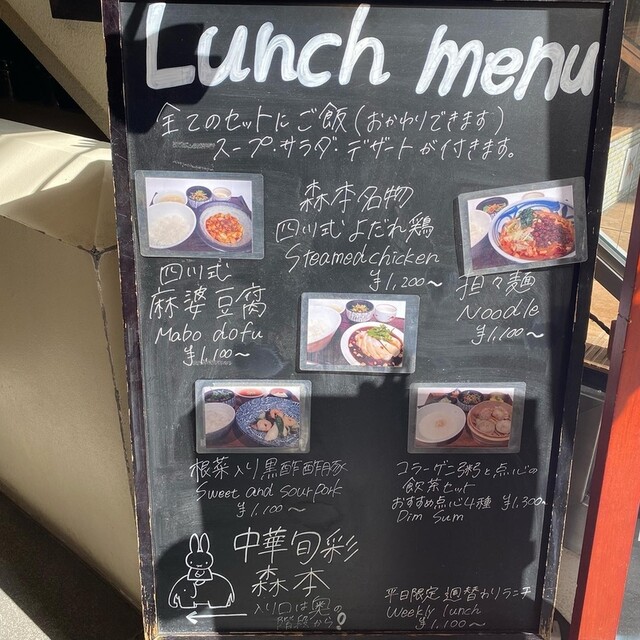 Lunch menu
全てのセットにご飯(おかわりできます)
スープ・サラダ・デザートが付きます。
森本名物
四川式よだれ鶏
Steamed chicken
¥1,200〜
四川式
麻婆豆腐
Mabo dofu
¥1,100〜
担々麺
Noodle
¥1,100〜
根菜入り黒酢酢豚
Sweet and sour pork
¥1,100〜
コラーゲン粥と点心の
飲茶セット
おすすめ点心4種 ¥1,300〜
Dim Sum
中華旬彩
森本
入り口は奥の
階段から!
平日限定 週替わりランチ
Weekly lunch
¥1,100〜